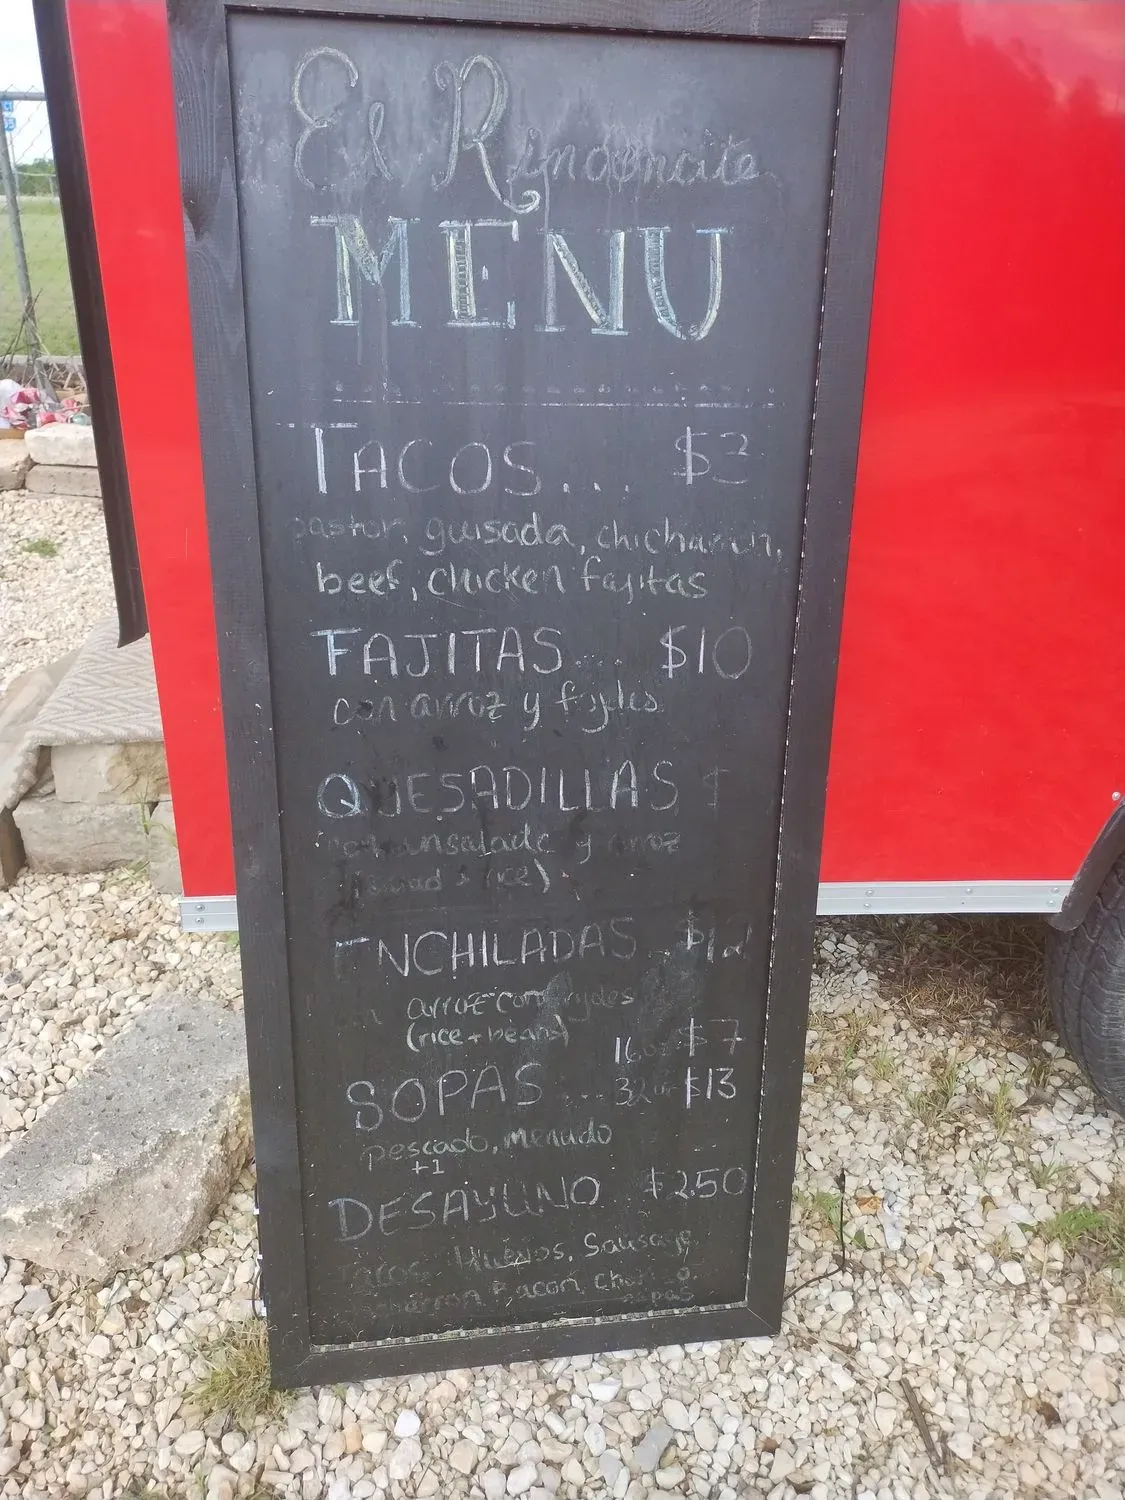 El Rinconcito
MENU
TACOS... $3
pastor, guisada, chicharron,
beef, chicken fajitas
FAJITAS.... $10
con arroz y frijoles
QUESADILLAS $
con ensalada y arroz
(salad + rice)
ENCHILADAS .. $12
arroz con frijoles
(rice + beans)
16oz $7
SOPAS ... 32oz $13
pescado, menudo
+1
DESAYUNO .. $250
Tacos Huevos, Sausage,
Bacon, Chorizo,
papas